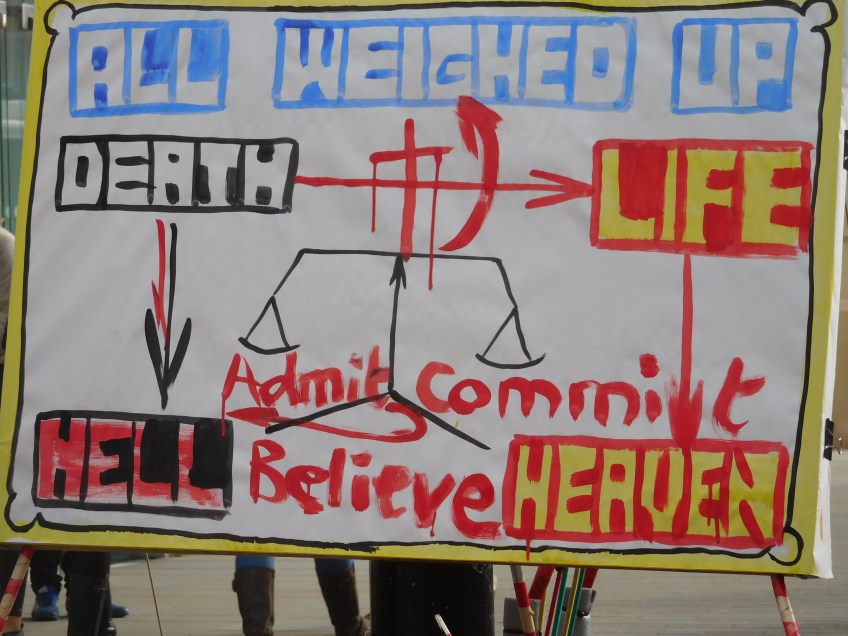 ALL WEIGHED UP
DEATH LIFE
Admit Commit
HELL Believe HEAVEN